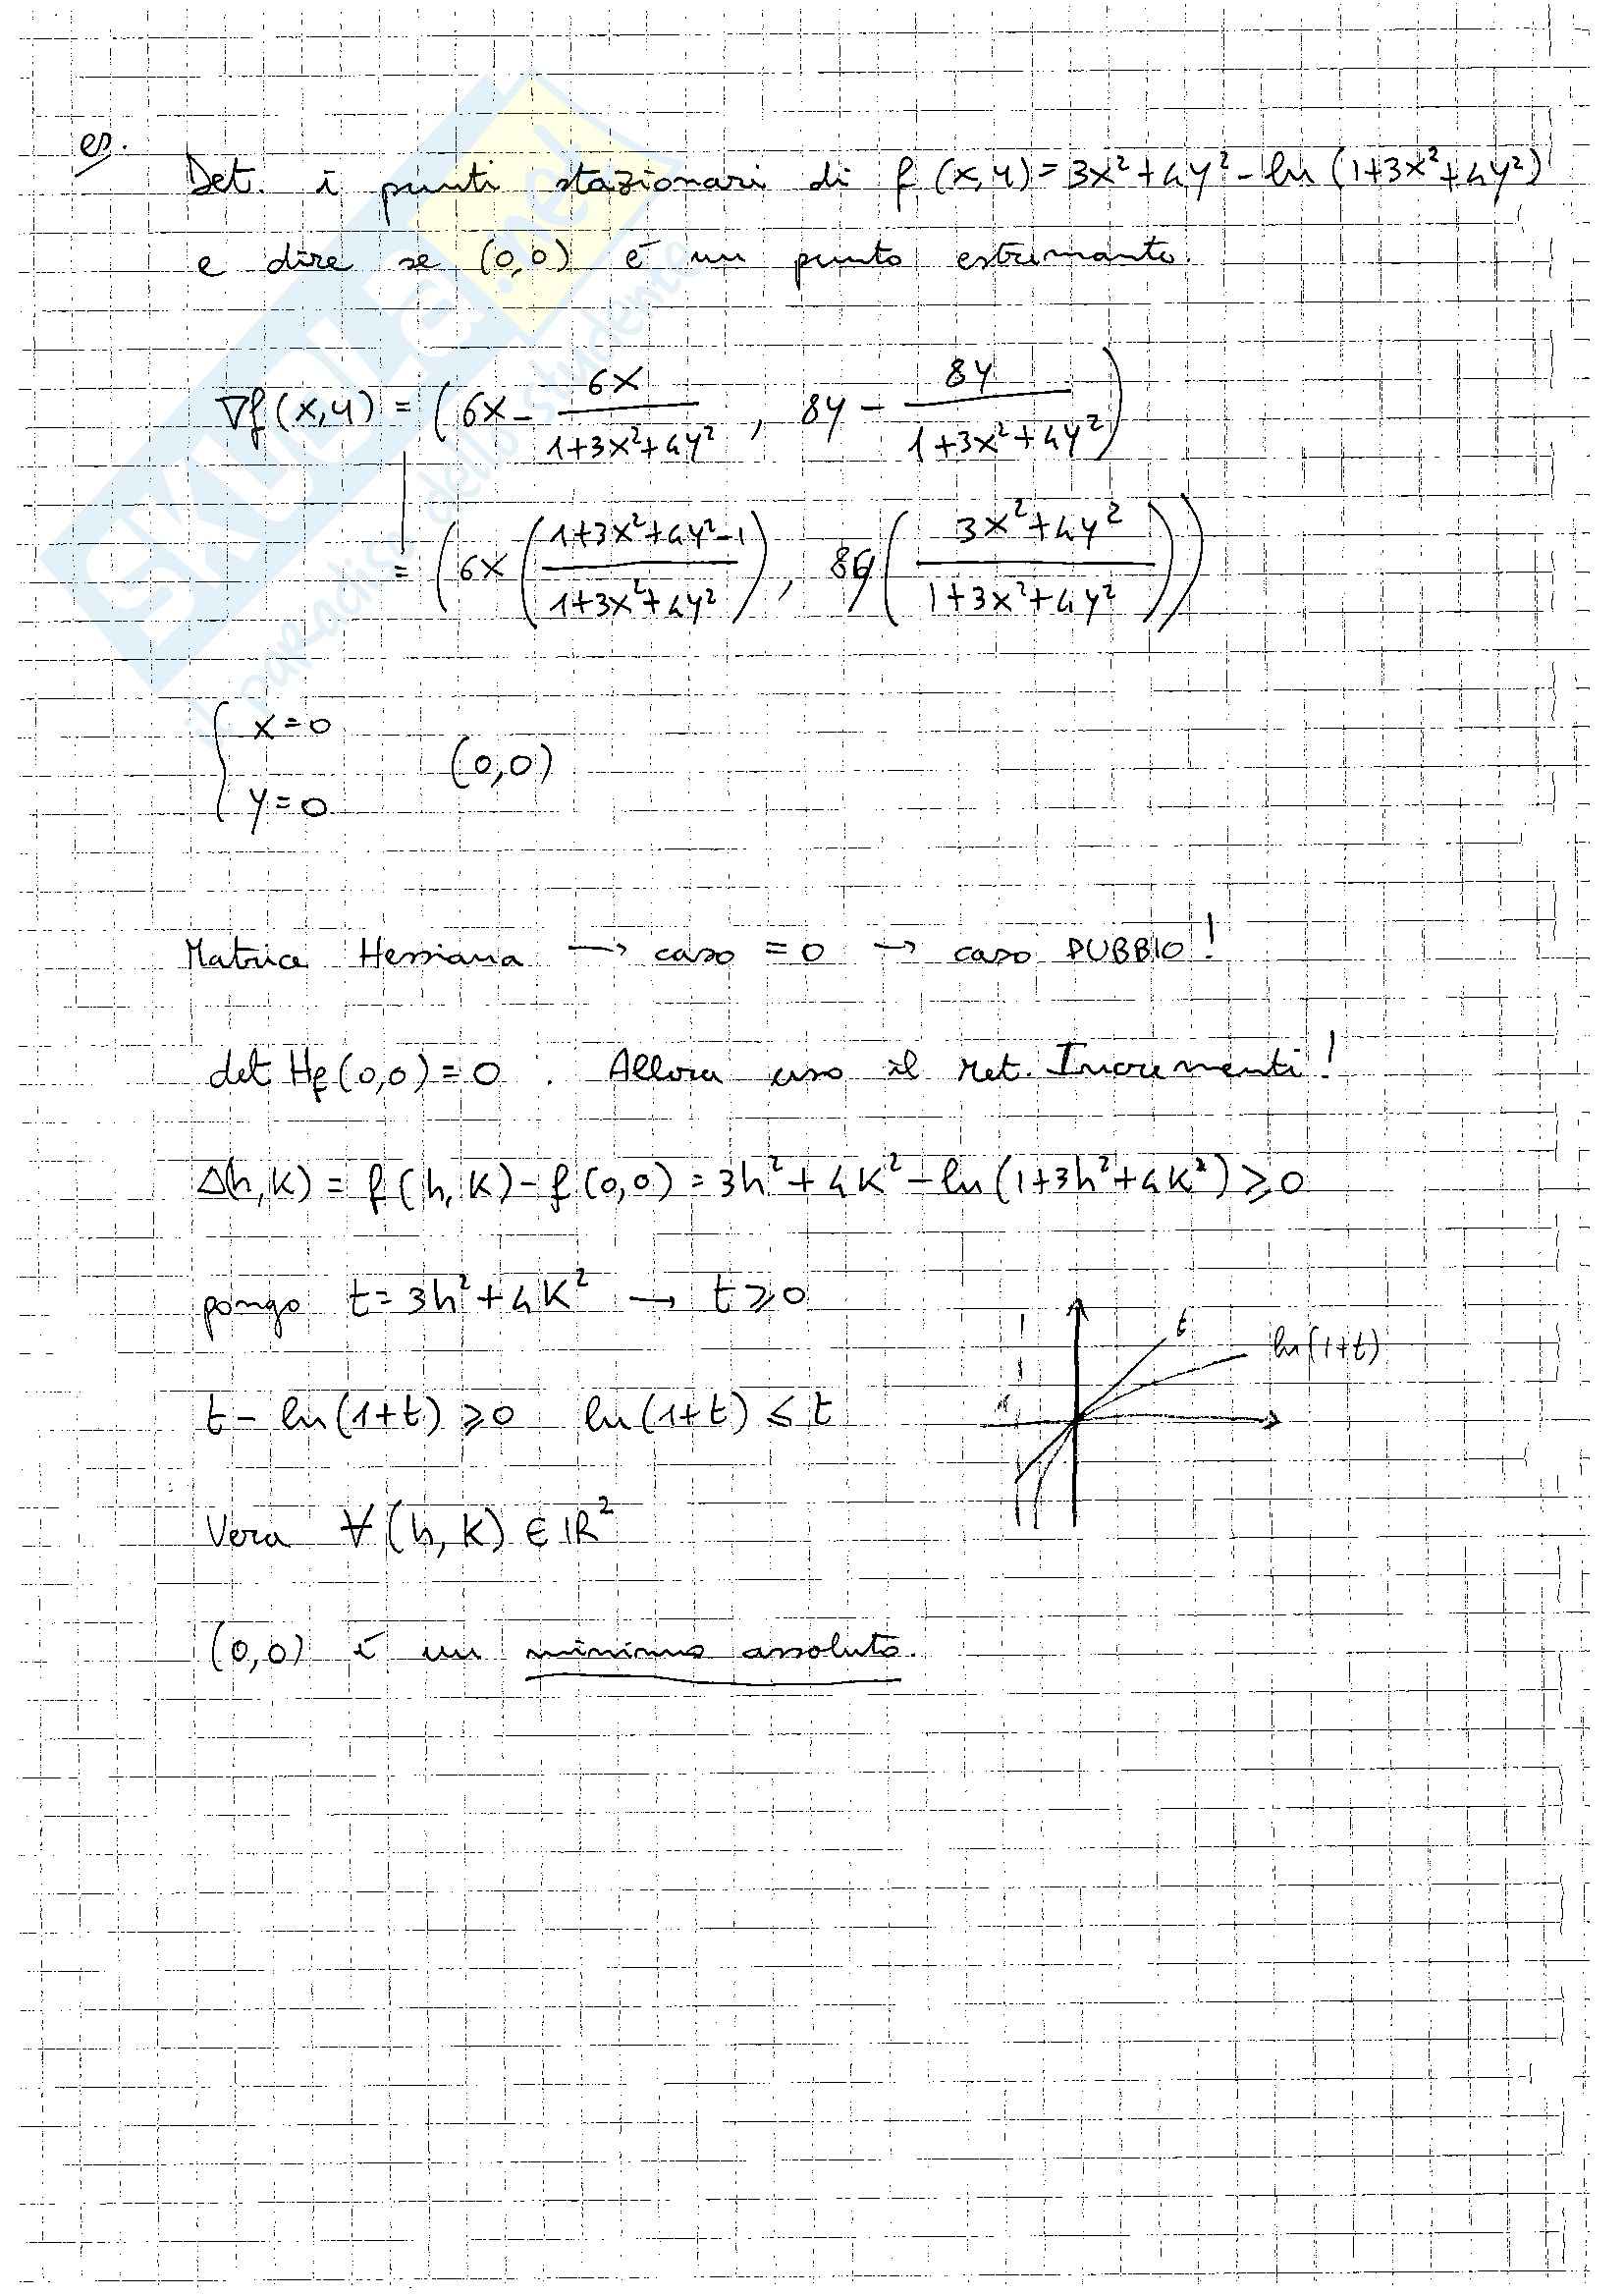 es.
Det. i punti stazionari di f(x,y) = 3x² + 4y² - ln(1+3x²+4y²)
e dire se (0,0) è un punto estremante.
∇f(x,y) = (6x - 6x/(1+3x²+4y²), 8y - 8y/(1+3x²+4y²))
= (6x((1+3x²+4y²-1)/(1+3x²+4y²)), 8y((3x²+4y²)/(1+3x²+4y²)))
{ x=0
y=0
(0,0)
Matrice Hessiana → caso = 0 → caso DUBBIO!
det Hf(0,0) = 0. Allora uso il Met. Incrementi!
Δ(h,k) = f(h,k) - f(0,0) = 3h² + 4k² - ln(1+3h²+4k²) ⩾ 0
pongo t = 3h² + 4k² → t ⩾ 0
t
ln(1+t)
t - ln(1+t) ⩾ 0 ln(1+t) ⩽ t
Vera ∀(h,k) ∈ ℝ²
(0,0) è un minimo assoluto.